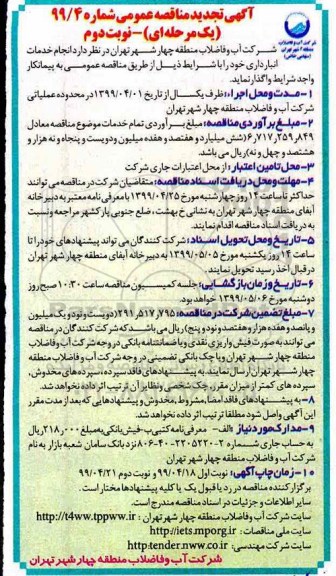 آگهی تجدید مناقصه عمومی شماره ۹۹/۴
(یک مرحله ای) - نوبت دوم
شرکت آب و فاضلاب منطقه چهار شهر تهران در نظر دارد انجام خدمات
انبارداری خود را با شرایط ذیل از طریق مناقصه عمومی به پیمانکار
واجد شرایط واگذار نماید.
۱- مدت و محل اجرا: ظرف یکسال از تاریخ ۱۳۹۹/۰۴/۰۱ در محدوده عملیاتی
شرکت آب و فاضلاب منطقه چهار شهر تهران
۲- مبلغ برآوردی مناقصه: مبلغ برآوردی تمام خدمات موضوع مناقصه معادل
۶,۷۱۷,۲۵۹,۸۴۹ (شش میلیارد و هفتصد و هفده میلیون و دویست و پنجاه و نه هزار و
هشتصد و چهل و نه) ریال می باشد.
۳- محل تامین اعتبار: از محل اعتبارات جاری شرکت
۴- مهلت و محل دریافت اسناد مناقصه: متقاضیان شرکت در مناقصه می توانند
حداکثر تا ساعت ۱۴ روز چهارشنبه مورخ ۱۳۹۹/۰۴/۲۵ با معرفی نامه معتبر به دبیرخانه
آبفای منطقه چهار شهر تهران به نشانی خ بهشت، ضلع جنوبی پارکشهر مراجعه و نسبت
به دریافت اسناد مناقصه اقدام نمایند.
۵- تاریخ و محل تحویل اسناد: شرکت کنندگان می تواند پیشنهادهای خود را تا
ساعت ۱۴ روز یکشنبه مورخ ۱۳۹۹/۰۵/۰۵ به دبیرخانه آبفای منطقه چهار شهر تهران
در قبال اخذ رسید تحویل نمایند.
۶- تاریخ و زمان بازگشایی: جلسه کمیسیون مناقصه ساعت ۱۰:۳۰ صبح روز
دوشنبه مورخ ۱۳۹۹/۰۵/۰۶ خواهد بود.
۷- مبلغ تضمین شرکت در مناقصه: ۲۹۱,۵۱۷,۷۹۵ (دویست و نود و یک میلیون
و پانصد و هفده هزار و هفتصد و نود و پنج) ریال می باشد که شرکت کنندگان در مناقصه
می توانند به صورت فیش واریزی نقدی و یا ضمانتنامه بانکی در وجه شرکت آب و فاضلاب
منطقه چهار شهر تهران و یا چک بانکی تضمینی در وجه شرکت آب و فاضلاب منطقه
چهار شهر تهران ارسال نمایند. به پیشنهادهای فاقد سپرده، سپرده های مخدوش،
سپرده های کمتر از میزان مقرر، چک شخصی و نظایر آن ترتیب اثر داده نخواهد شد.
۸- به پیشنهادهای فاقد امضا، مشروط، مخدوش و پیشنهادهایی که بعد از مدت مقرر
این آگهی واصل شود مطلقا ترتیب اثر داده نخواهد شد.
۹- مدارک مورد نیاز: الف- معرفی نامه کتبی ب- فیش بانکی به مبلغ ۲۱۸,۰۰۰ ریال
به حساب جاری شماره ۲-۲۲۰۵۲۲-۴۰-۸۰۶ نزد بانک سامان شعبه بازار به نام
شرکت آب و فاضلاب منطقه چهار شهر تهران
۱۰- زمان چاپ آگهی: نوبت اول ۹۹/۰۴/۱۸ و نوبت دوم ۹۹/۰۴/۲۱
برگزار کننده مناقصه در رد یا قبول یک یا کلیه پیشنهادها مختار است.
سایر اطلاعات و جزئیات در اسناد مناقصه مندرج است.
سایت شرکت آب و فاضلاب منطقه چهار شهر تهران: http://t4ww.tppww.ir
سایت ملی مناقصات: http://iets.mporg.ir
سایت شرکت مهندسی: http:tender.nww.co.ir
شرکت آب و فاضلاب منطقه چهار شهر تهران